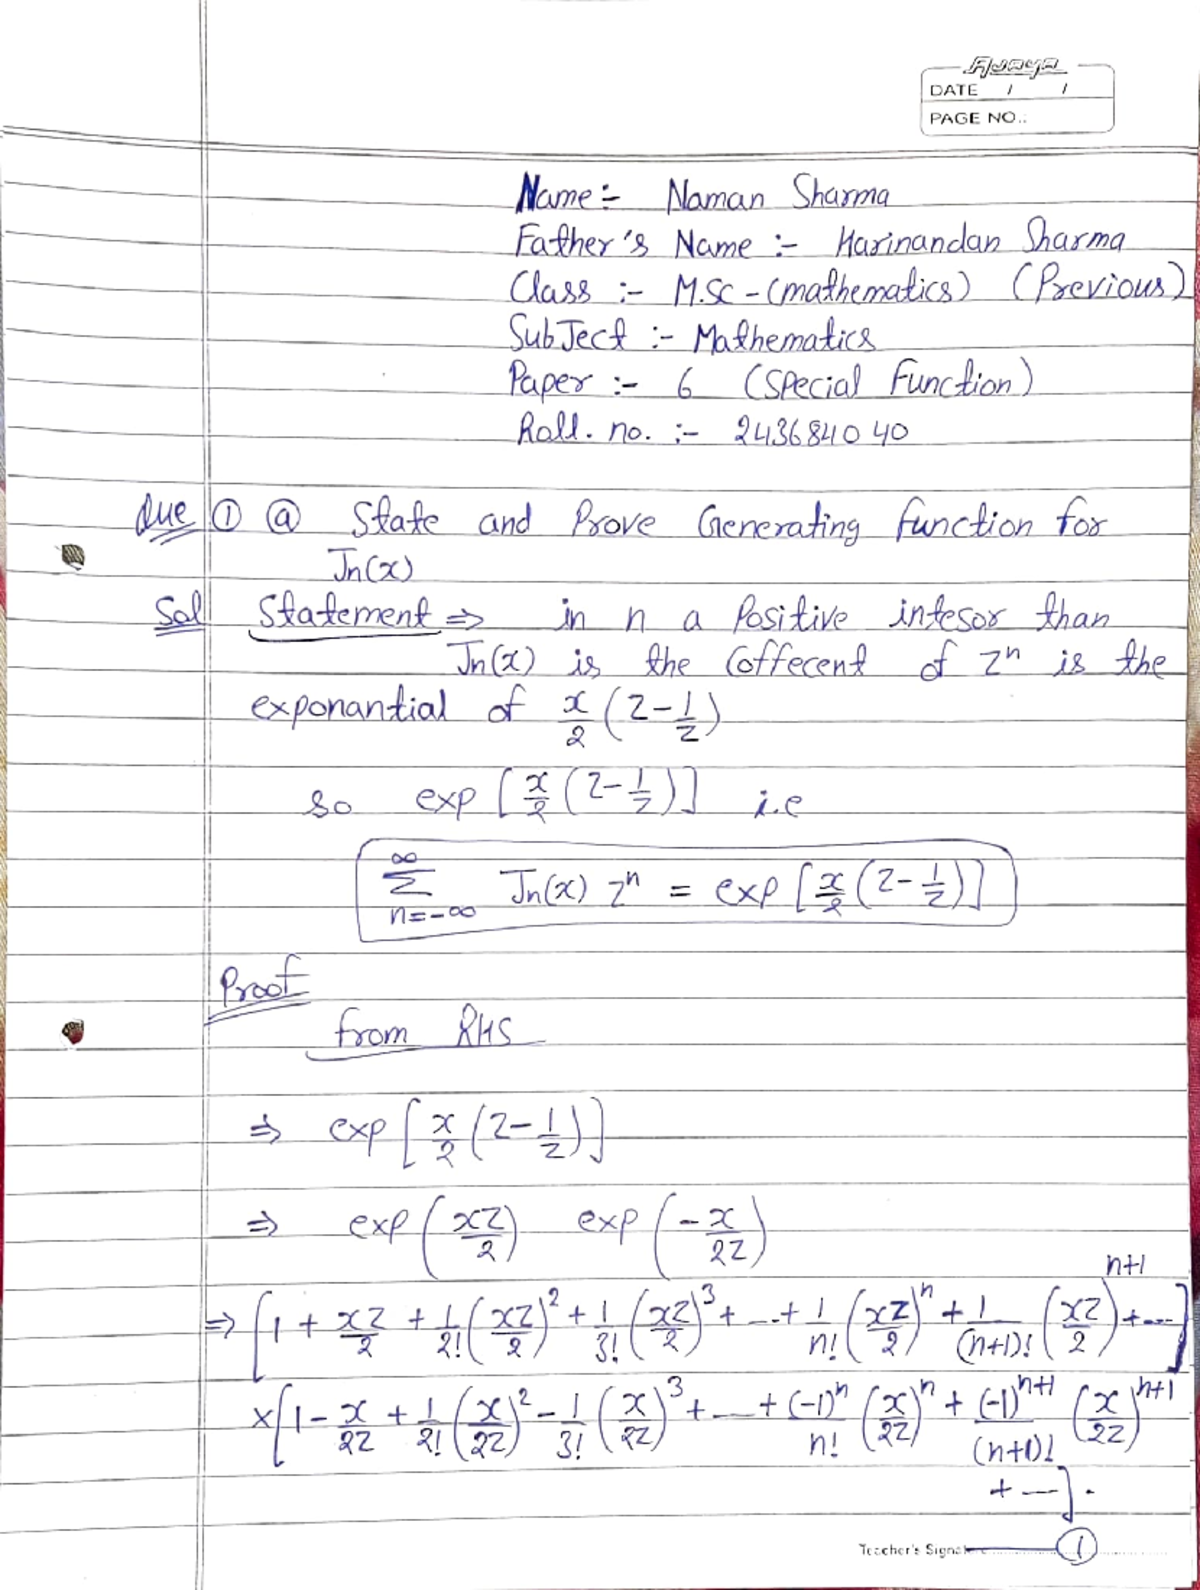 Ajanya
DATE / /
PAGE NO.:
Name :- Naman Sharma
Father's Name :- Harinandan Sharma
Class :- M.Sc - (mathematics) (Previous)
SubJect :- Mathematics
Paper :- 6 (SPecial Function)
Roll. no. :- 2436840 40
Que ① ⓐ State and Prove Generating function for
Jn(x)
Sol Statement ⇒ in n a Positive intesor than
Jn(x) is the Coffecent of Zⁿ is the
exponantial of x/2 (Z - 1/Z)
so exp [x/2 (Z - 1/Z)] i.e
∞Σn=-∞ Jn(x) Zⁿ = exp [x/2 (Z - 1/Z)]
Proof
from RHS
⇒ exp [x/2 (Z - 1/Z)]
⇒ exp (xZ/2) exp (-x/2Z)
⇒ [1 + xZ/2 + 1/2! (xZ/2)² + 1/3! (xZ/2)³ + ... + 1/n! (xZ/2)ⁿ + 1/(n+1)! (xZ/2)ⁿ⁺¹ + ...]
× [1 - x/2Z + 1/2! (x/2Z)² - 1/3! (x/2Z)³ + ... + (-1)ⁿ/n! (x/2Z)ⁿ + (-1)ⁿ⁺¹/(n+1)! (x/2Z)ⁿ⁺¹
+ — ].
Teacher's Signature ①